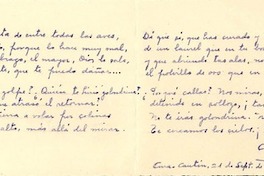 ta de entre todas las aves,
porque lo haces muy mal,
el mayor, Dios lo sabe,
te, que te puedo dañar...
golpe? ¿Quién te hirió golondrina?
atraso el retornar!
a volar por colinas
alto, más allá del mirar.
Dí que sí, que has curado y
de un laurel que en tu bo
y que abriendo tus alas, no
el potrillo de oro que en
¿Por qué callas? Nos miras,
detenido en
No te irás golondrina.
Te creamos los cielos,
Cura-Cautín, 21 de Sept. d